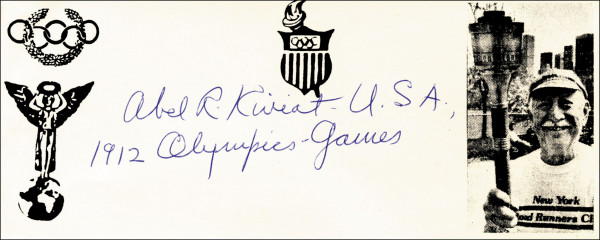 Abel R. Kiviat - U.S.A.,
1912 Olympics-Games
New York
Road Runners Cl